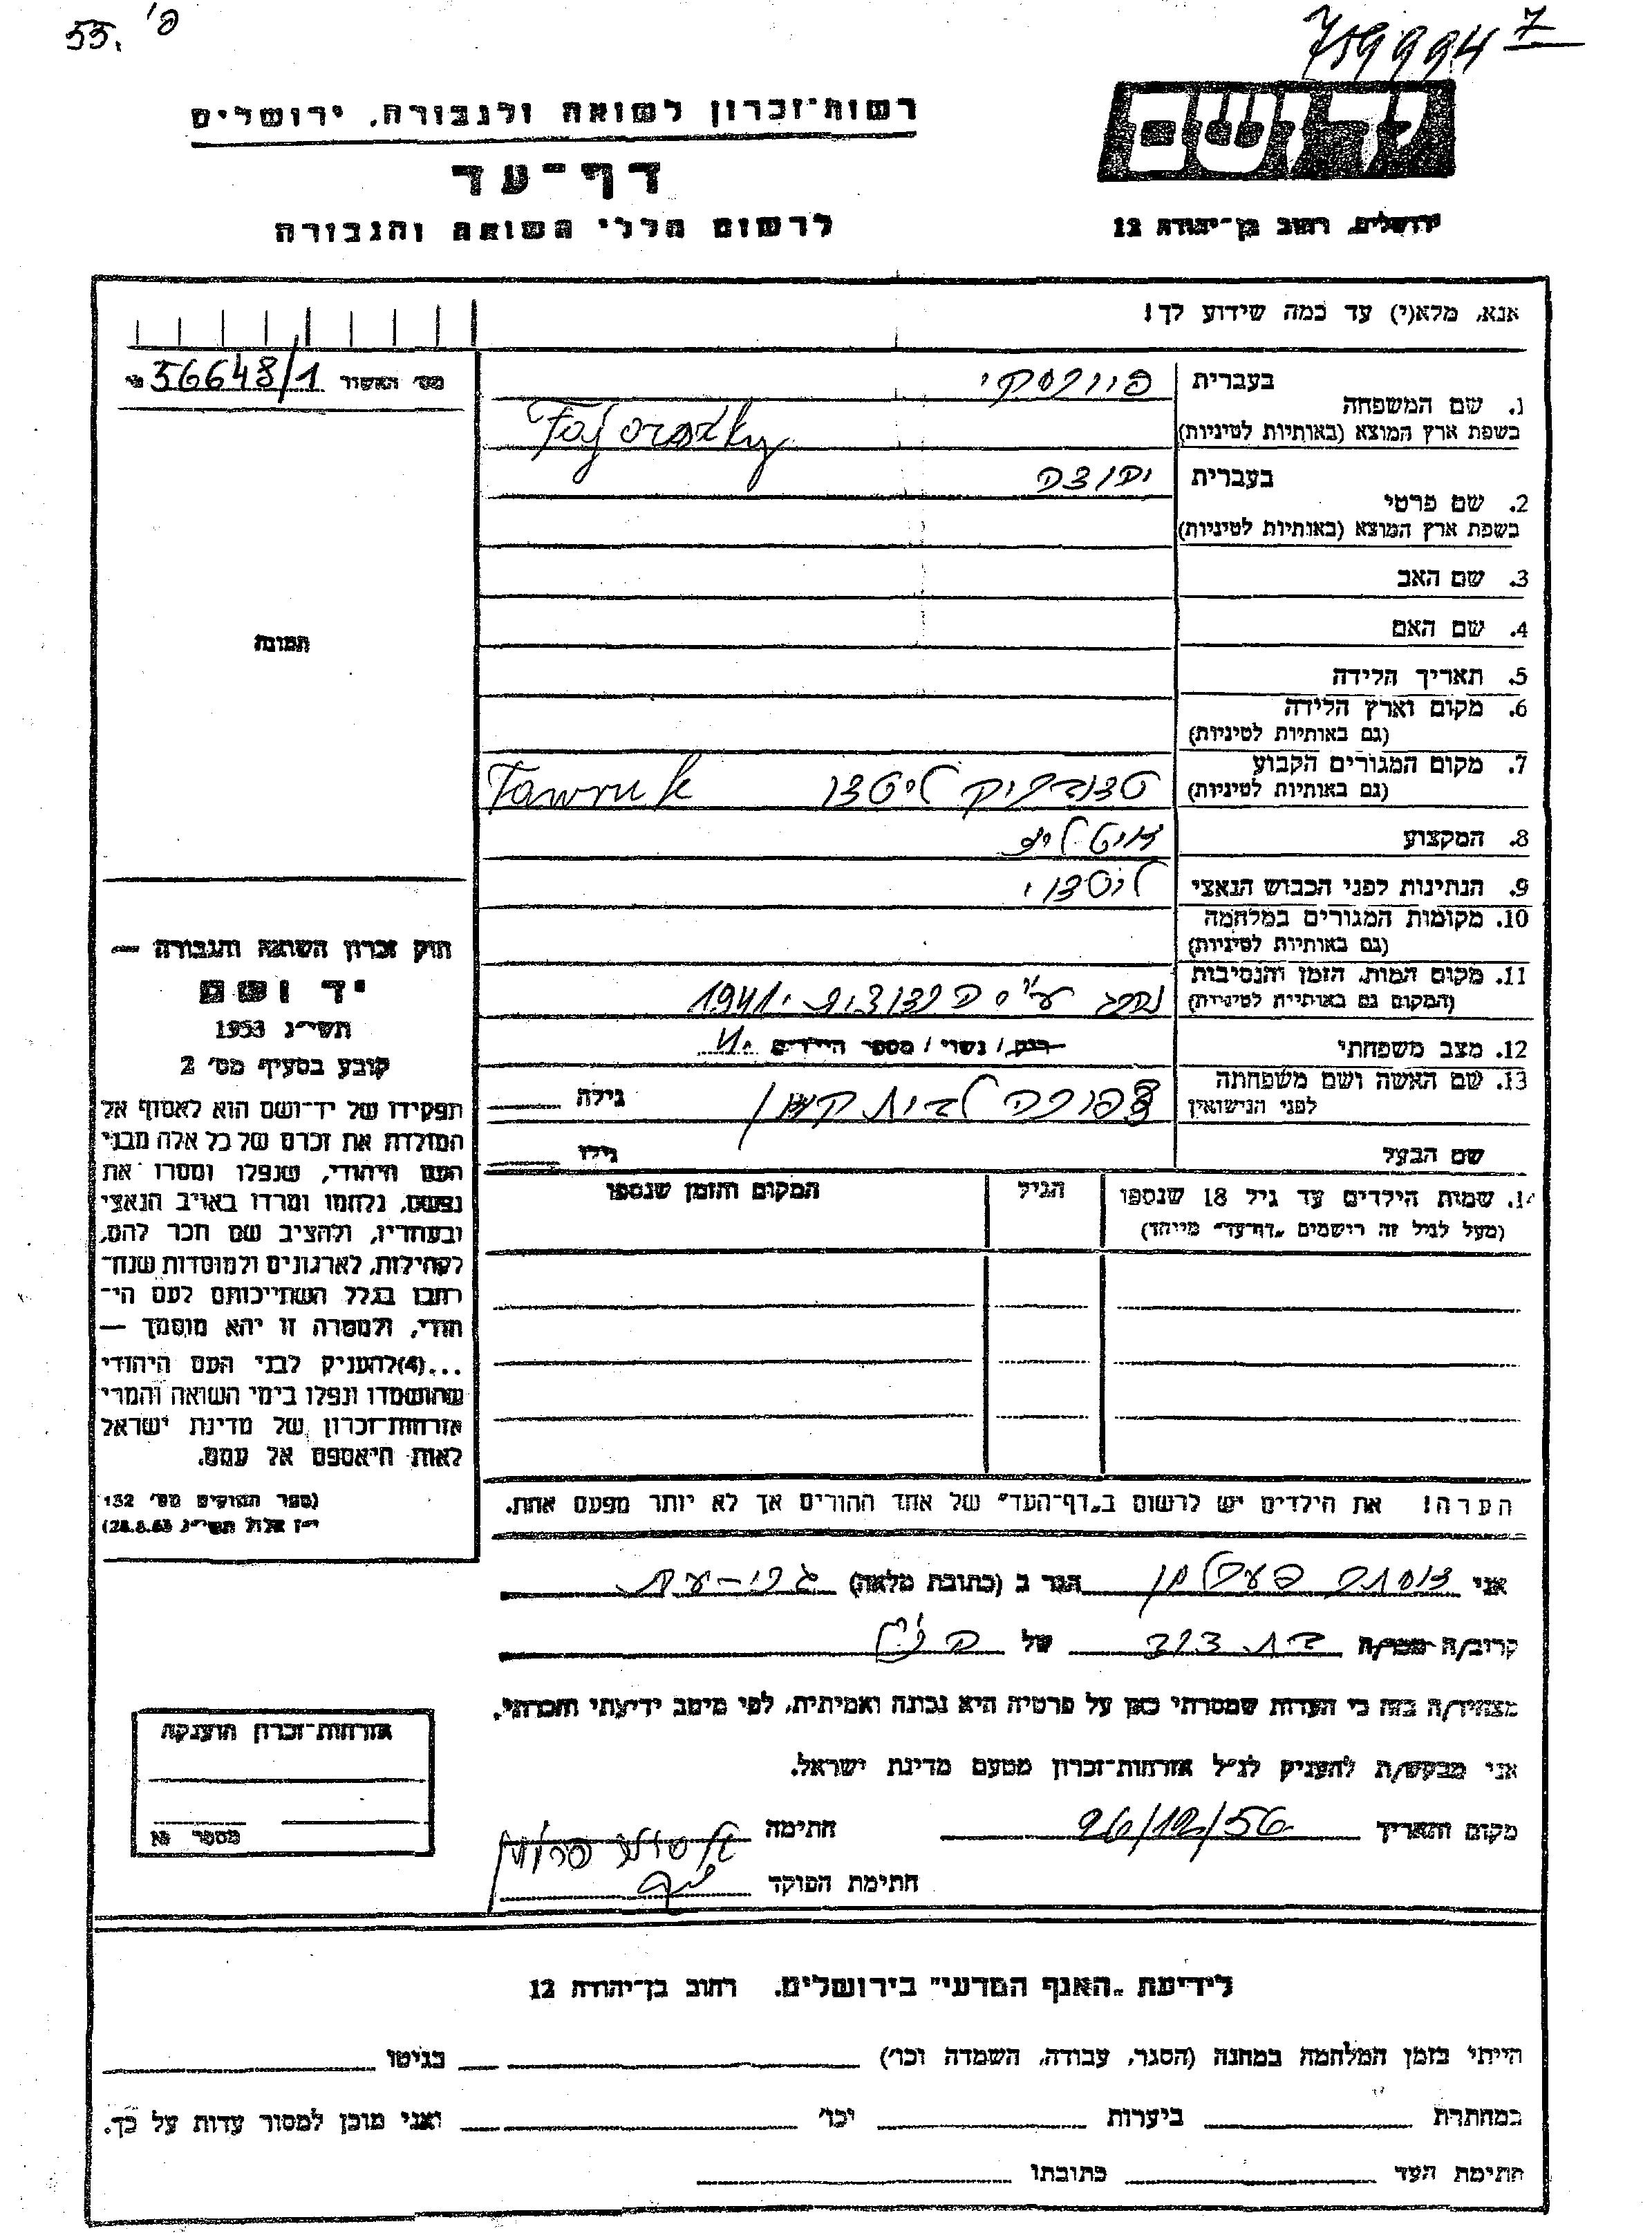 55. פ'
759994 7
רשות־זכרון לשואה ולגבורה, ירושלים
דף־עד
לרשום חללי השואה והגבורה
יד ושם
ירושלים, רחוב בן־יהודה 12
אנא, מלא(י) עד כמה שידוע לך!
מס' האשור 56648/1
1. שם המשפחה
בעברית
בשפת ארץ המוצא (באותיות לטיניות)
2. שם פרטי
בעברית יהודה
בשפת ארץ המוצא (באותיות לטיניות)
3. שם האב
4. שם האם
5. תאריך הלידה
6. מקום וארץ הלידה
(גם באותיות לטיניות)
7. מקום המגורים הקבוע
(גם באותיות לטיניות)
8. המקצוע
9. הנתינות לפני הכבוש הנאצי
10. מקומות המגורים במלחמה
(גם באותיות לטיניות)
11. מקום המות, הזמן והנסיבות נהרג ע"י 1941
(המקום גם באותיות לטיניות)
12. מצב משפחתי רוק/ נשוי/ מספר הילדים
13. שם האשה ושם משפחתה
לפני הנישואין צפורה לבית גילה
שם הבעל גילו
תמונה
חוק זכרון השואה והגבורה —
יד ושם
תשי"ג 1953
קובע בסעיף מס' 2
תפקידו של יד־ושם הוא לאסוף אל
המולדת את זכרם של כל אלה מבני
העם היהודי, שנפלו ומסרו את
נפשם, נלחמו ומרדו באויב הנאצי
ובעוזריו, ולהציב שם וזכר להם,
לקהילות, לארגונים ולמוסדות שנח־
רבו בגלל השתייכותם לעם הי־
הודי, ולמטרה זו יהא מוסמך —
...(4)להעניק לבני העם היהודי
שהושמדו ונפלו בימי השואה והמרי
אזרחות־זכרון של מדינת ישראל
לאות היאספם אל עמם.
(ספר החוקים מס' 132
י"ז אלול תשי"ג 28.8.53)
14. שמות הילדים עד גיל 18 שנספו הגיל המקום והזמן שנספו
(מעל לגיל זה רישמים „דף־עד" מייוחד)
הערה! את הילדים יש לרשום ב„דף־העד" של אחד ההורים אך לא יותר מפעם אחת.
אני הגר ב (כתובת מלאה)
קרוב/ה מכר/ה בת דוד של הנ"ל
מצהיר/ה בזה כי העדות שמסרתי כאן על פרטיה היא נכונה ואמיתית, לפי מיטב ידיעתי והכרתי.
אני מבקש/ת להעניק לנ"ל אזרחות־זכרון מטעם מדינת ישראל.
מקום ותאריך 26/12/56 חתימה
חתימת הפוקד
אזרחות־זכרון הוענקה
מספר
לידיעת „האגף המדעי" בירושלים. רחוב בן־יהודה 12
הייתי בזמן המלחמה במחנה (הסגר, עבודה, השמדה וכו') בגיטו
במחתרת ביערות וכו' ואני מוכן למסור עדות על כך.
חתימת העד כתובתו